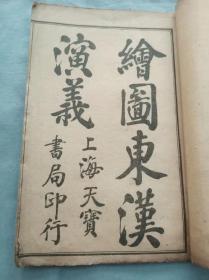 繪圖東漢
演義
上海天寶
書局印行